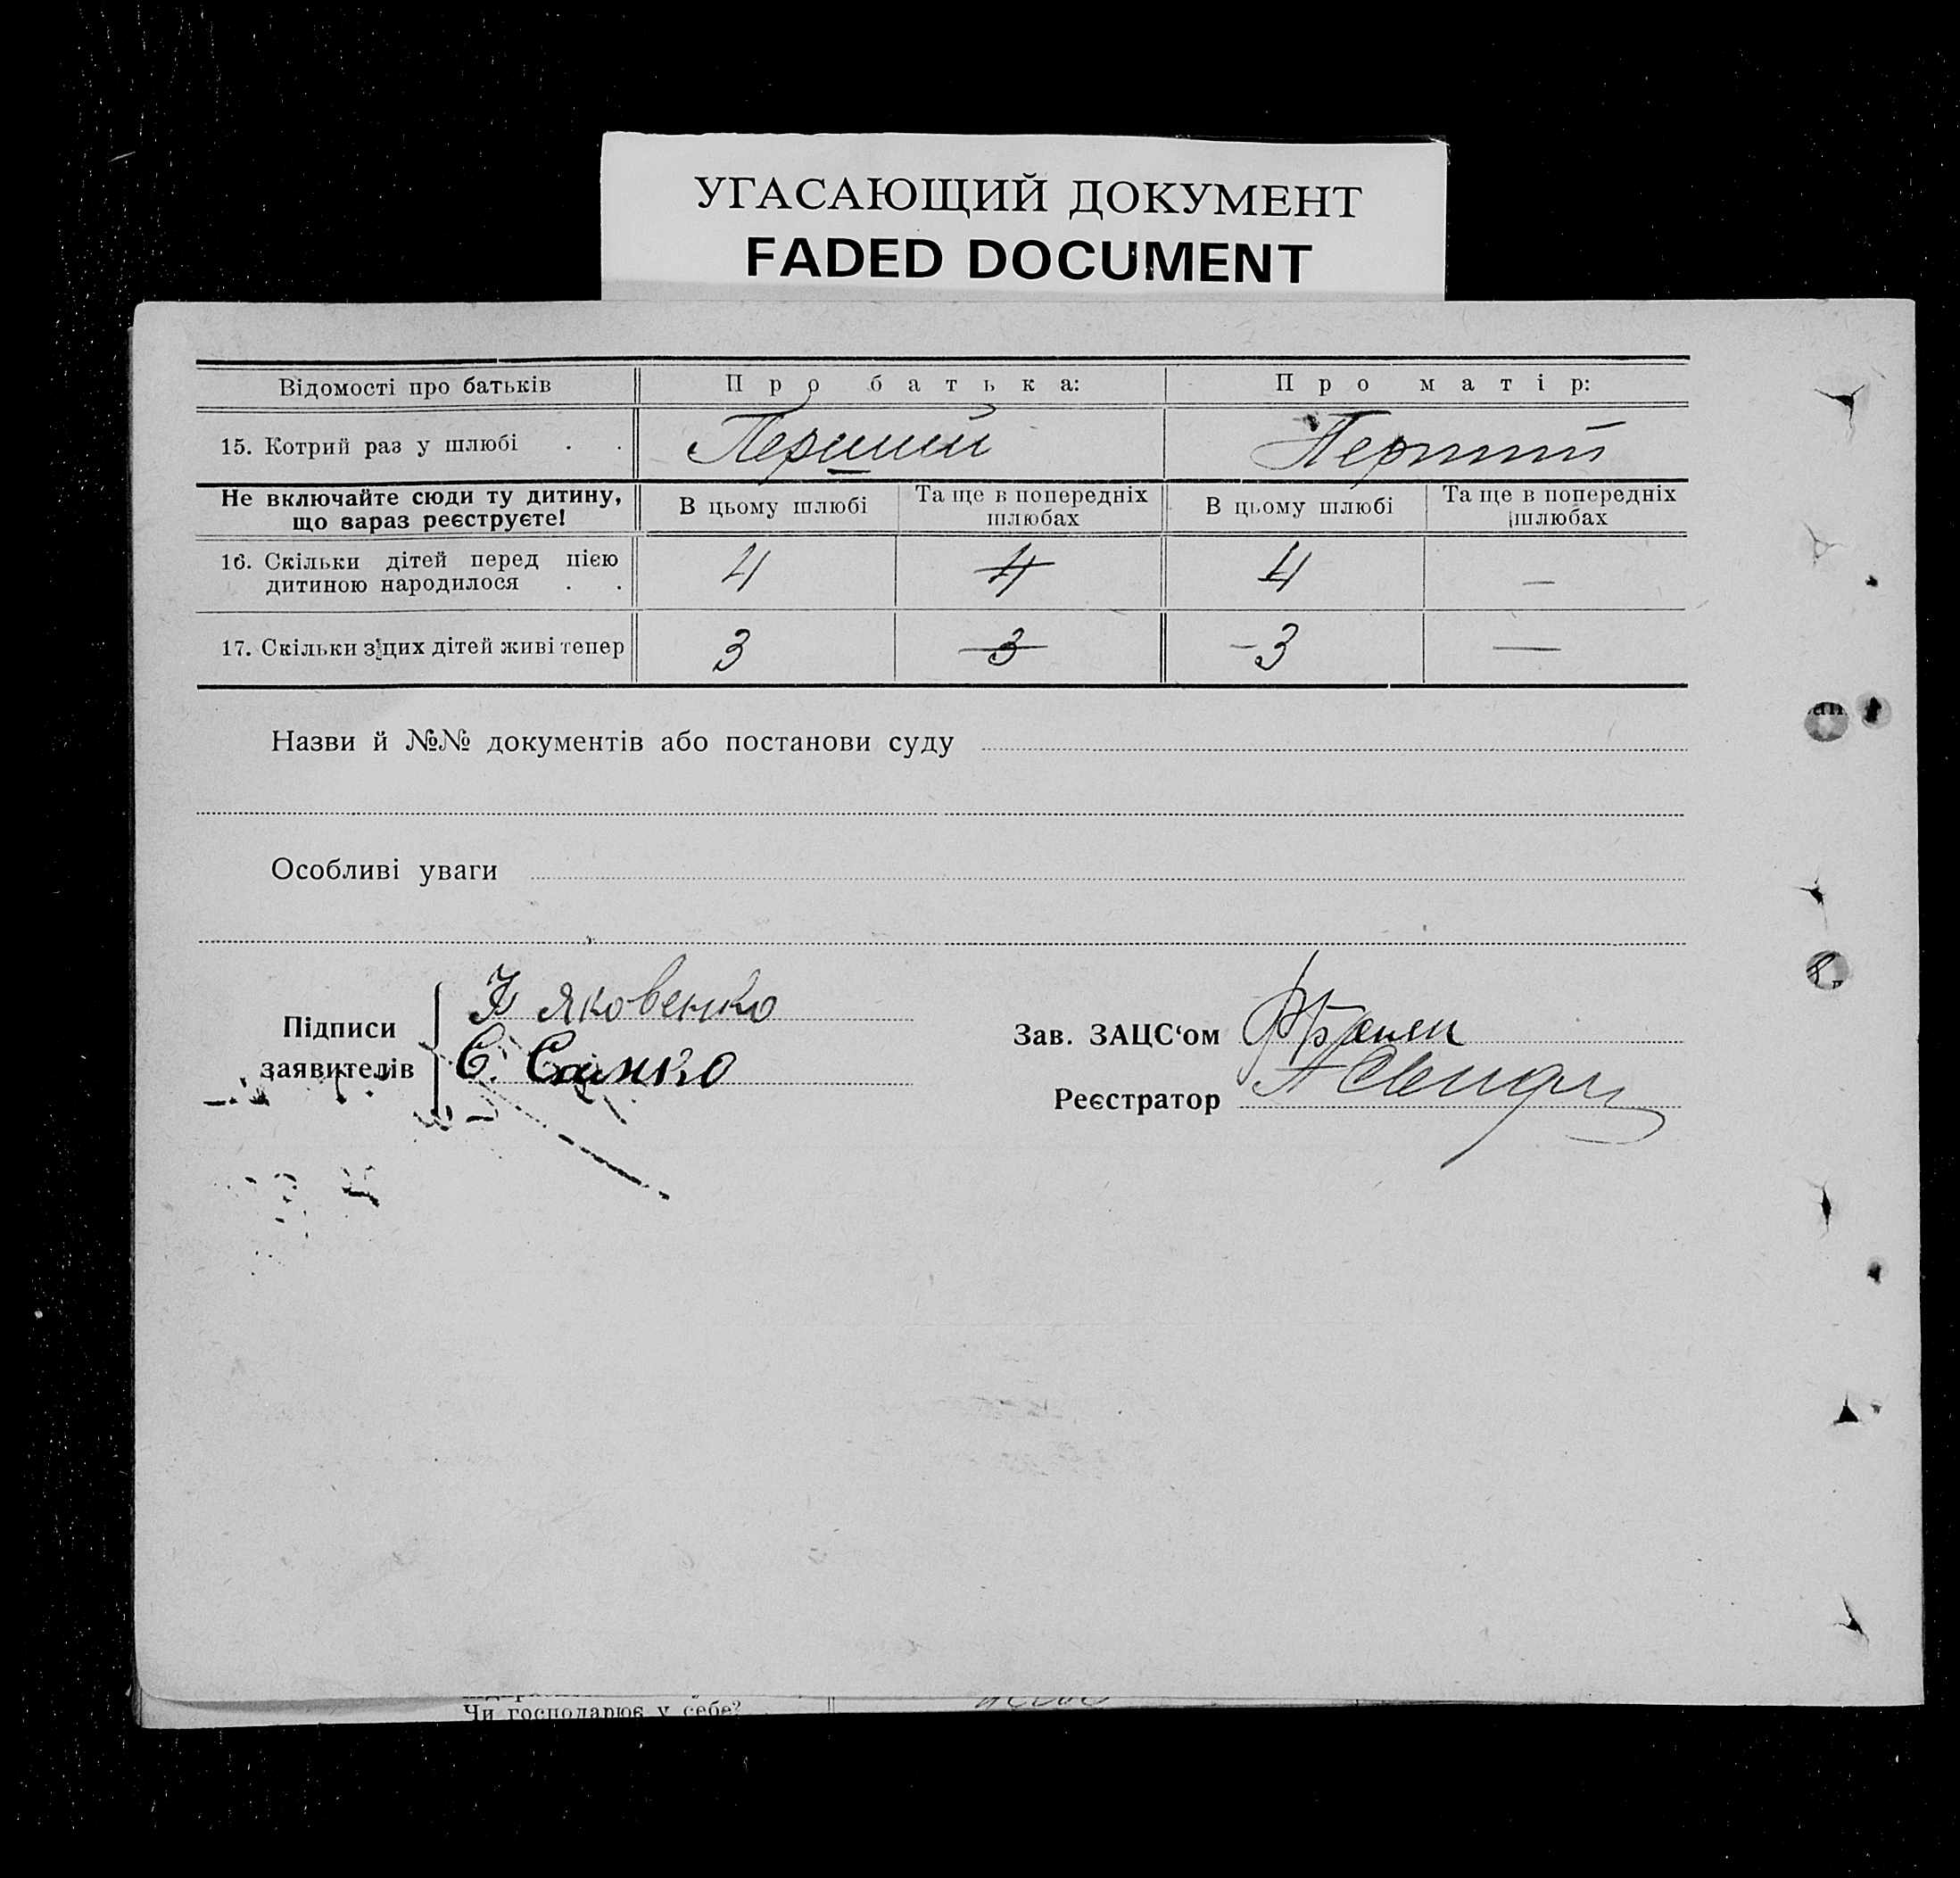 УГАСАЮЩИЙ ДОКУМЕНТ
FADED DOCUMENT
Відомості про батьків Про батька: Про матір:
15. Котрий раз у шлюбі . . Перший Перший
Не включайте сюди ту дитину, що вараз реєструєте! В цьому шлюбі Та ще в попередніх шлюбах В цьому шлюбі Та ще в попередніх шлюбах
16. Скільки дітей перед цією дитиною народилося . . 4 4 4 —
17. Скільки з цих дітей живі тепер 3 3 – 3 —
Назви й №№ документів або постанови суду
Особливі уваги
Підписи заявителів
Яковенко
С.
Зав. ЗАЦС‘ом
Реєстратор
Чи господарює у себе?